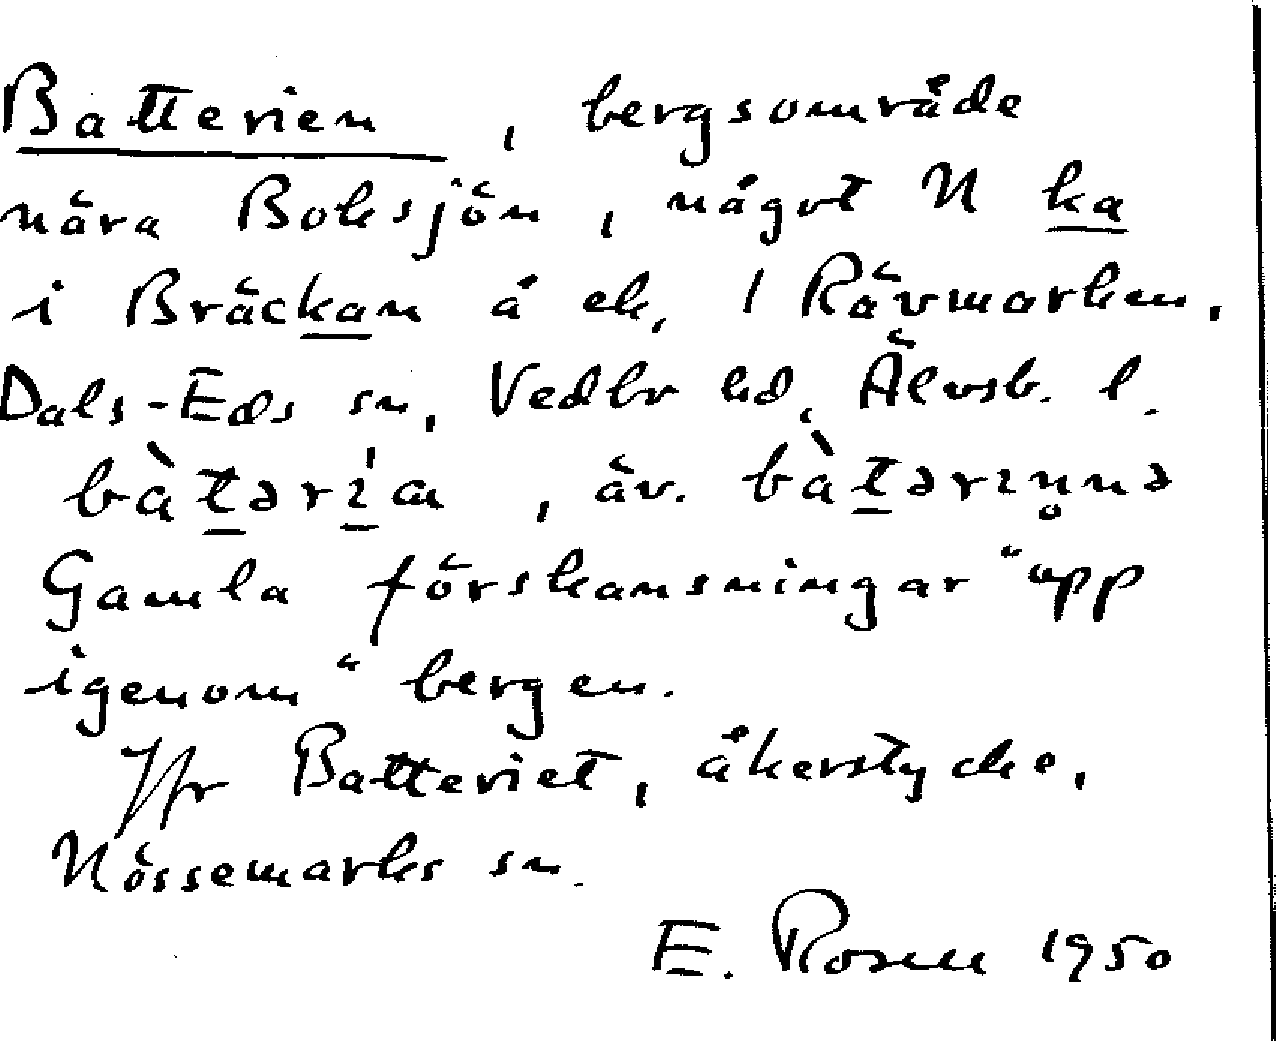 Batterien, bergsområde
nära Boksjön, något N ka
i Bräckan å ek. 1 Rävmarken,
Dals-Eds sn, Vedbo hd, Älvsb. l.
bàtərìa, äv. bàtərɪn̥nə
Gamla förskansningar "upp
igenom" bergen.
Jfr Batteriet, åkerstycke,
Nössemarks sn.
E. Rosen 1950